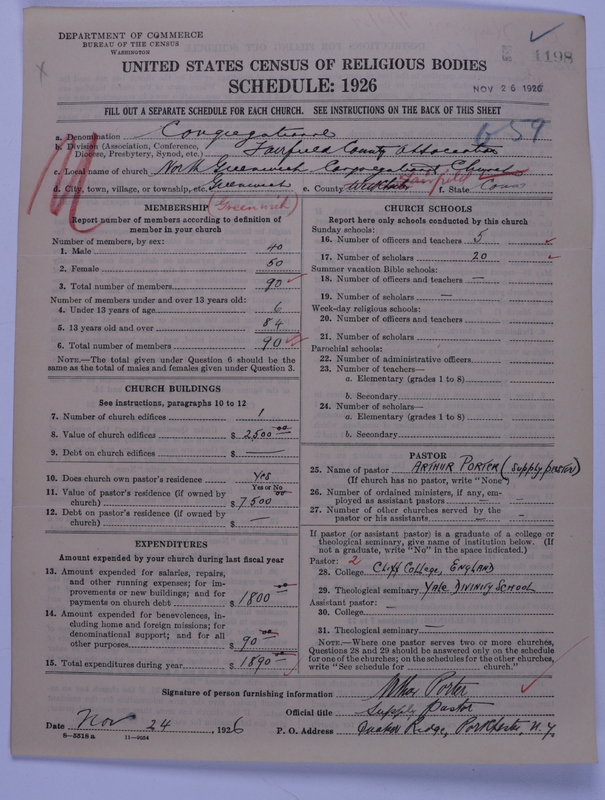 DEPARTMENT OF COMMERCE
BUREAU OF THE CENSUS
WASHINGTON
1198
UNITED STATES CENSUS OF RELIGIOUS BODIES
SCHEDULE: 1926
NOV 26 1926
FILL OUT A SEPARATE SCHEDULE FOR EACH CHURCH. SEE INSTRUCTIONS ON THE BACK OF THIS SHEET
a. Denomination Congregational
b. Division (Association, Conference, Diocese, Presbytery, Synod, etc.) Fairfield County Association
c. Local name of church North Greenwich Congregational Church
d. City, town, village, or township, etc. Greenwich e. County Fairfield f. State Conn
MEMBERSHIP (Greenwich)
Report number of members according to definition of
member in your church
Number of members, by sex:
1. Male 40
2. Female 50
3. Total number of members 90
Number of members under and over 13 years old:
4. Under 13 years of age 6
5. 13 years old and over 84
6. Total number of members 90
NOTE.—The total given under Question 6 should be
same as the total of males and females given under Question 3.
CHURCH BUILDINGS
See instructions, paragraphs 10 to 12
7. Number of church edifices 1
8. Value of church edifices $ 2500 00
9. Debt on church edifices $ —
10. Does church own pastor's residence Yes
Yes or No
11. Value of pastor's residence (if owned by
church) $ 7500 00
12. Debt on pastor's residence (if owned by
church) $ —
EXPENDITURES
Amount expended by your church during last fiscal year
13. Amount expended for salaries, repairs,
and other running expenses; for im-
provements or new buildings; and for
payments on church debt $ 1800
14. Amount expended for benevolences, in-
cluding home and foreign missions; for
denominational support; and for all
other purposes $ 90 00
15. Total expenditures during year $ 1890
CHURCH SCHOOLS
Report here only schools conducted by this church
Sunday schools:
16. Number of officers and teachers 5
17. Number of scholars 20
Summer vacation Bible schools:
18. Number of officers and teachers —
19. Number of scholars —
Week-day religious schools:
20. Number of officers and teachers
21. Number of scholars
Parochial schools:
22. Number of administrative officers
23. Number of teachers—
a. Elementary (grades 1 to 8)
b. Secondary
24. Number of scholars—
a. Elementary (grades 1 to 8)
b. Secondary
PASTOR
25. Name of pastor ARTHUR PORTER (Supply pastor)
(If church has no pastor, write "None")
26. Number of ordained ministers, if any, em-
ployed as assistant pastors —
27. Number of other churches served by the
pastor or his assistants —
If pastor (or assistant pastor) is a graduate of a college or
theological seminary, give name of institution below. (If
not a graduate, write "No" in the space indicated.)
Pastor: 2
28. College CLIFF COLLEGE, ENGLAND
29. Theological seminary YALE DIVINITY SCHOOL
Assistant pastor: —
30. College
31. Theological seminary —
NOTE.—Where one pastor serves two or more churches,
Questions 28 and 29 should be answered only on the schedule
for one of the churches; on the schedules for the other churches,
write "See schedule for church."
Signature of person furnishing information Arthur Porter
Official title Supply Pastor
Date Nov 24, 1926 P. O. Address Quaker Ridge, Portchester, N.Y.
8—5518a 11—9054